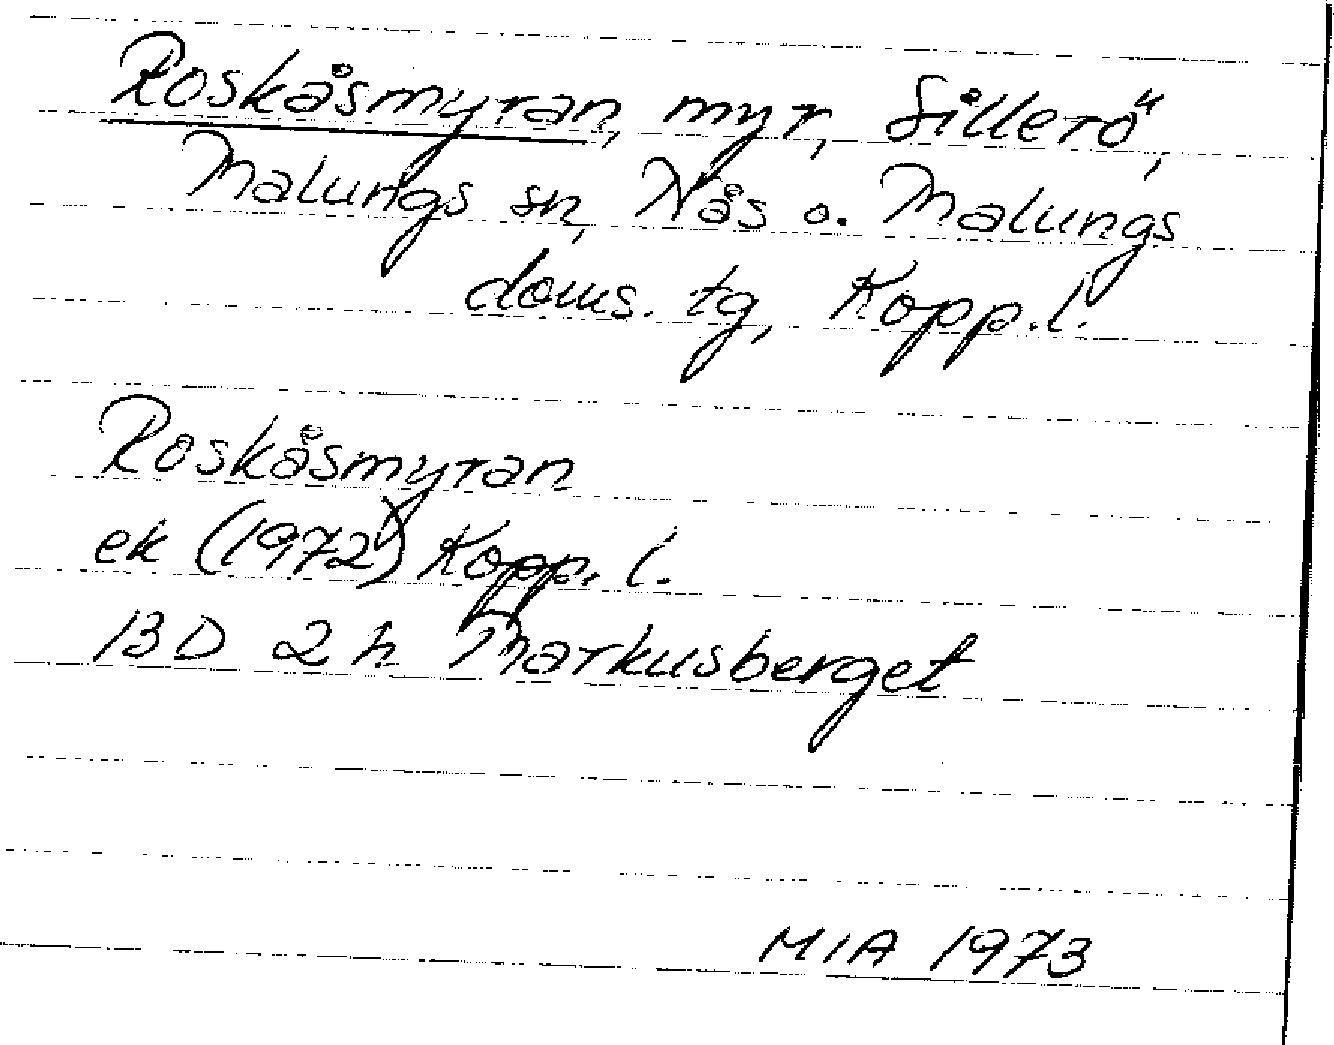 Roskåsmyran, myr, Sillerö,
Malungs sn, Nås o. Malungs
doms. tg, Kopp. l.
Roskåsmyran
ek (1972) Kopp. l.
13 D 2 h Markusberget
MIA 1973